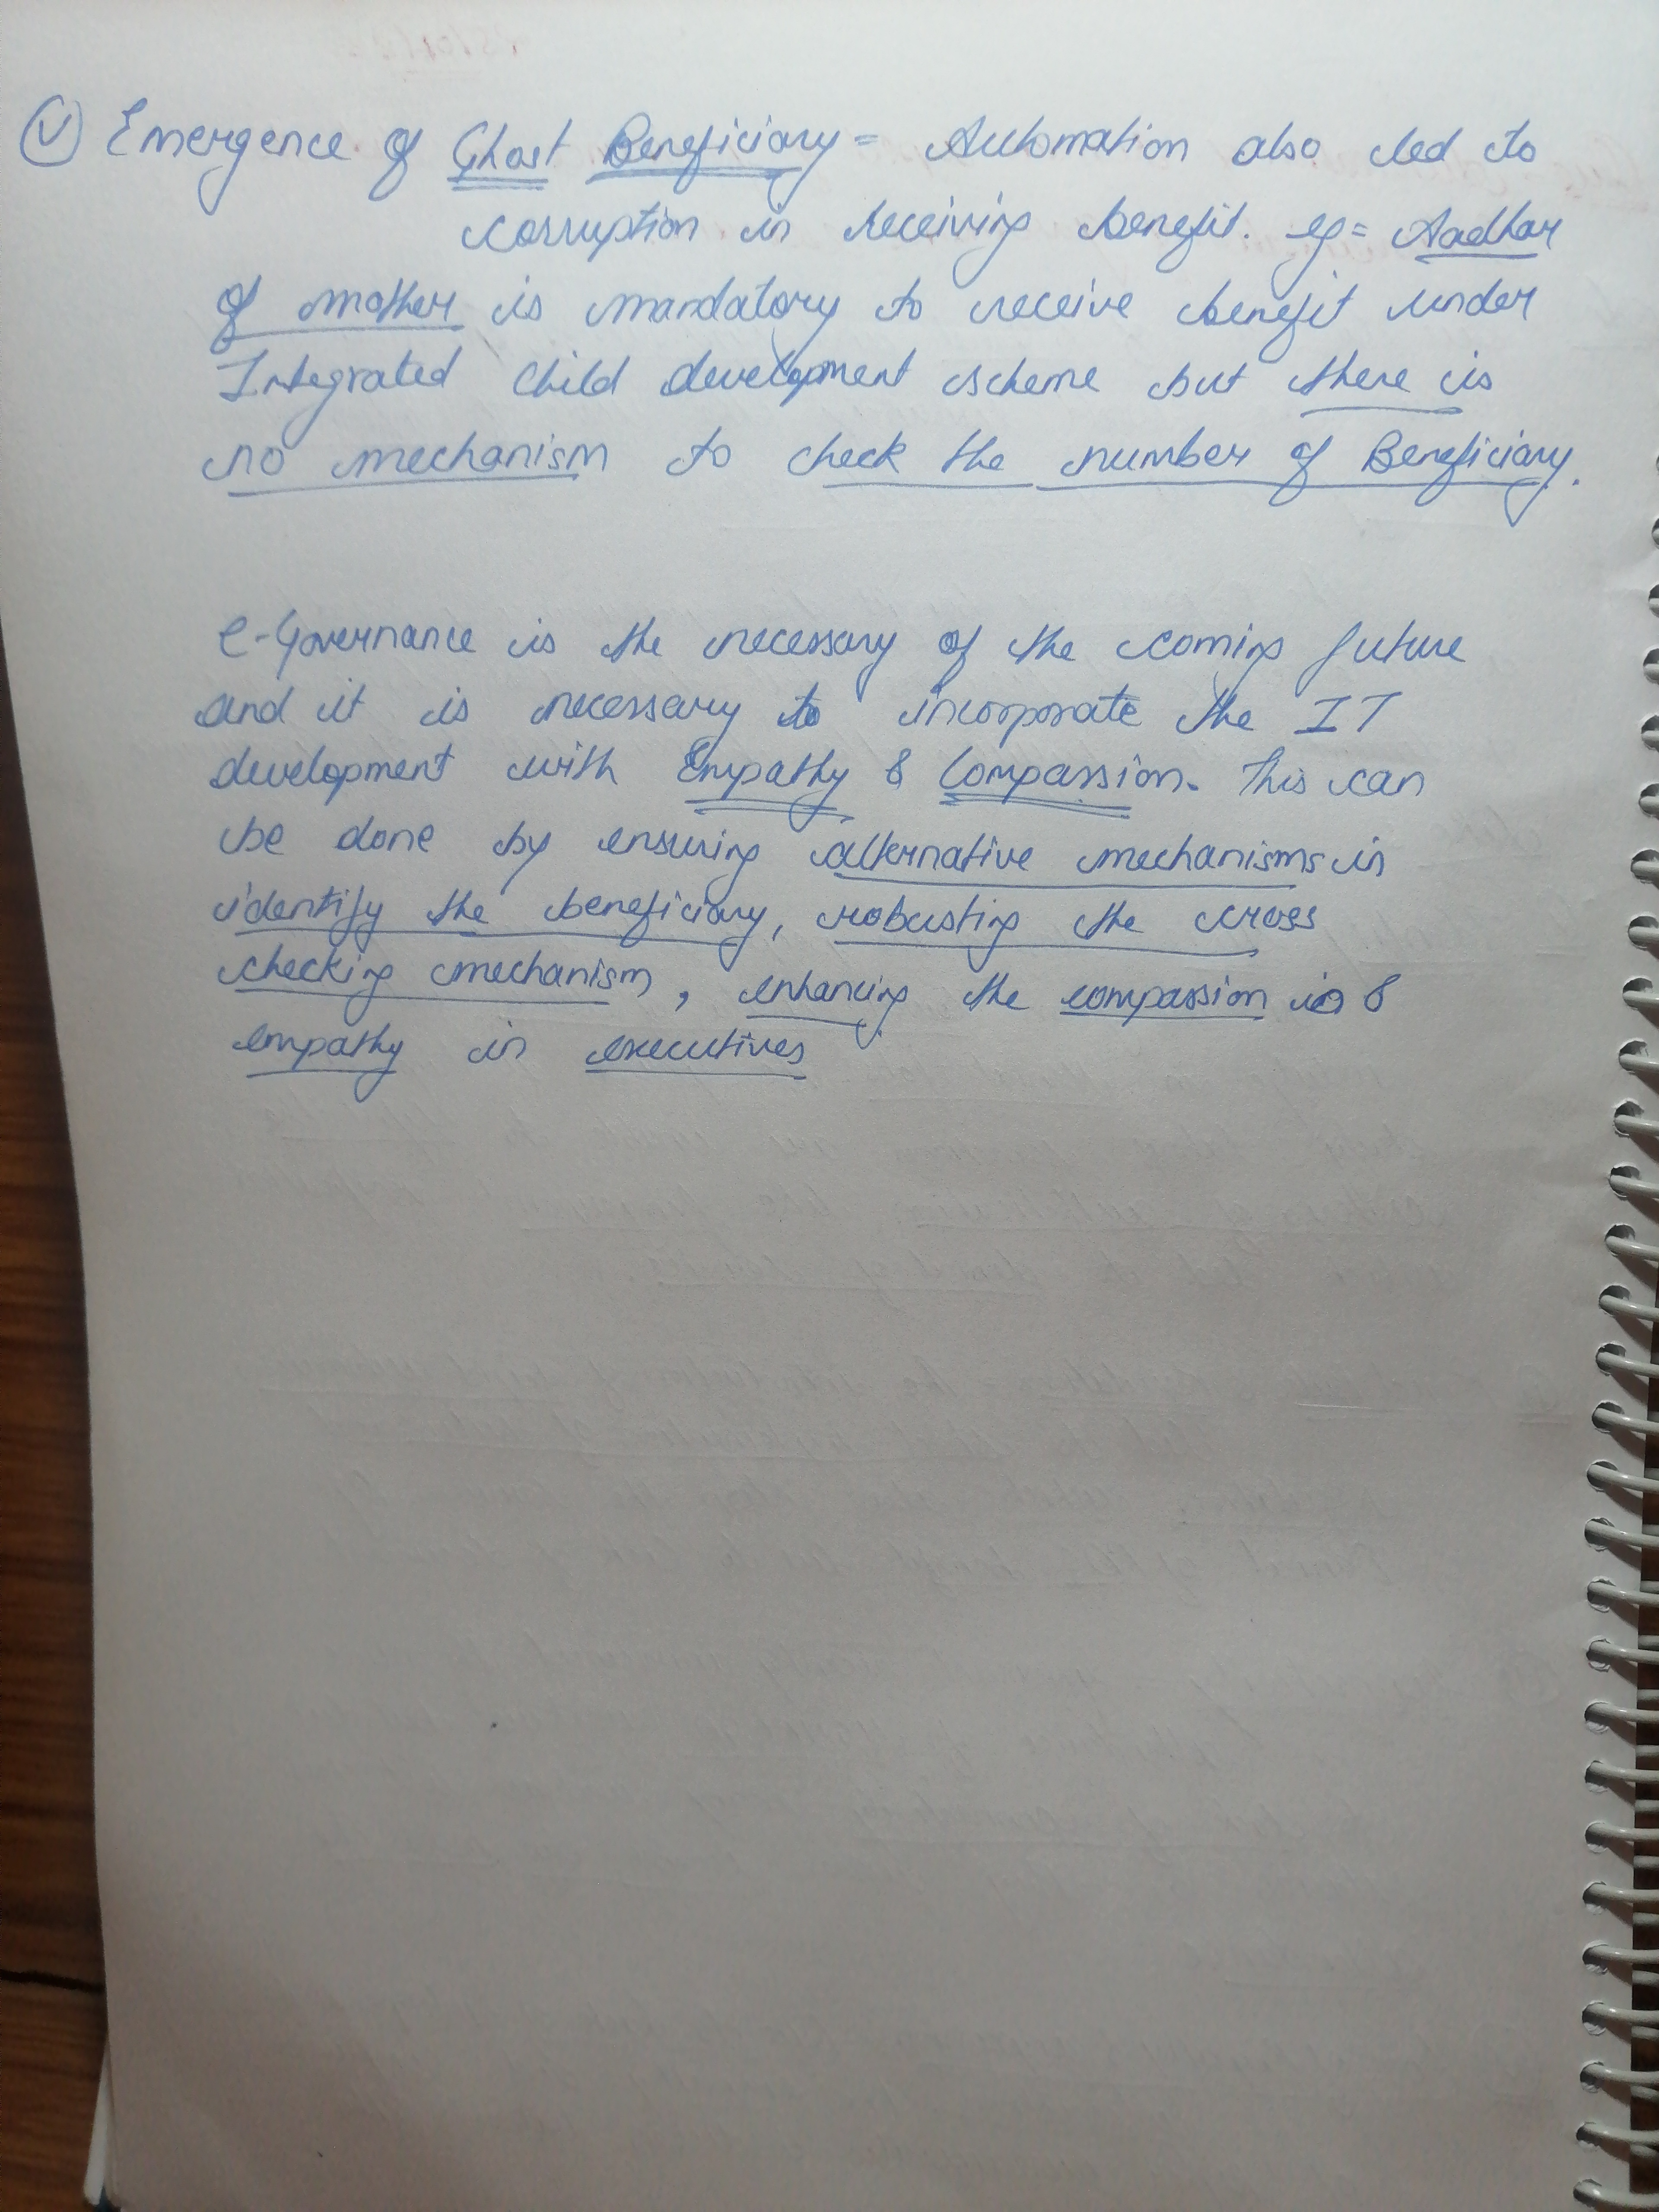 (V) Emergence of Ghost Beneficiary = Automation also led to
corruption in receiving benefit. eg = Aadhar
of mother is mandatory to receive benefit under
Integrated Child development scheme but there is
no mechanism to check the number of Beneficiary.
e-Governance is the necessary of the coming future
and it is necessary to incorporate the IT
development with Empathy & Compassion. This can
be done by ensuring alternative mechanisms in
identify the beneficiary, robusting the cross
checking mechanism, enhancing the compassion &
empathy in executives